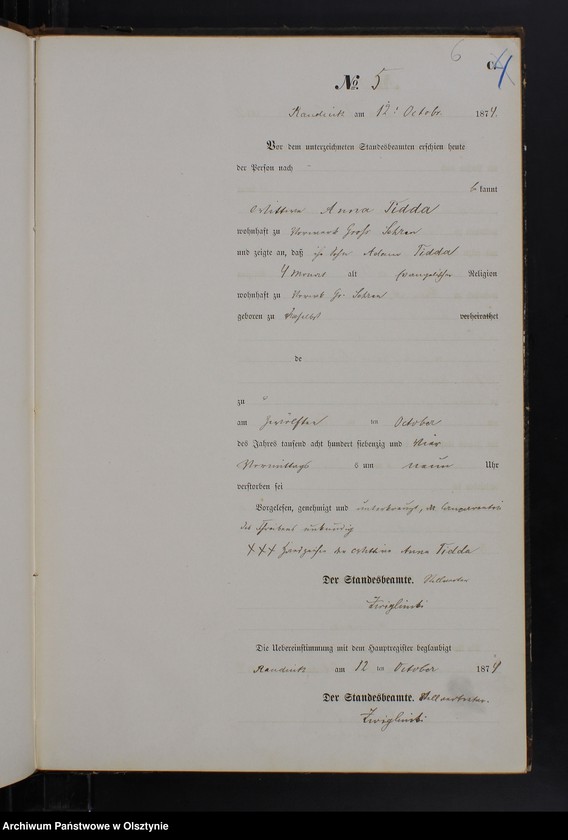 6
C. 4
No. 5
am 12t Octobr 1874.
Vor dem unterzeichneten Standesbeamten erschien heute
der Person nach
be kannt
Anna Tidda
wohnhaft zu Vorwerk Groß Schran
und zeigte an, daß ihr Sohn Adam Tidda
4 Monat alt evangelischer Religion
wohnhaft zu Vorwerk Gr. Schran
geboren zu daselbst verheirathet
de
zu
am zwölften ten October
des Jahres tausend acht hundert siebenzig und vier
Vormittags s um neun Uhr
verstorben sei
Vorgelesen, genehmigt und unterkreuzt, da Comparentin
des Schreibens unkundig
XXX Handzeichen der Anna Tidda
Der Standesbeamte.
Zwiglinski
Die Uebereinstimmung mit dem Hauptregister beglaubigt
am 12 ten October 1874
Der Standesbeamte.
Zwiglinski
Archiwum Państwowe w Olsztynie